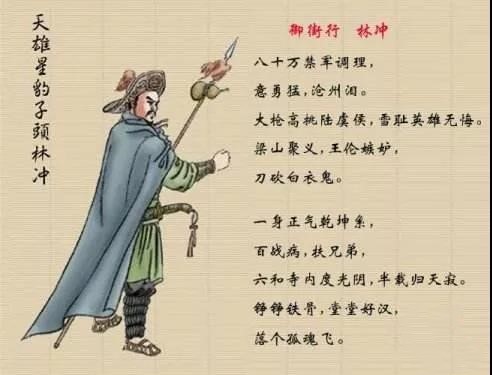 天雄星豹子頭林冲
御街行 林冲
八十万禁军调理，
意勇猛，沧州泪。
大枪高挑陆虞侯，雪耻英雄无悔。
梁山聚义，王伦嫉妒，
刀砍白衣鬼。
一身正气乾坤系，
百战病，扶兄弟，
六和寺内度光阴，半载归天寂。
铮铮铁骨，堂堂好汉，
落个孤魂飞。